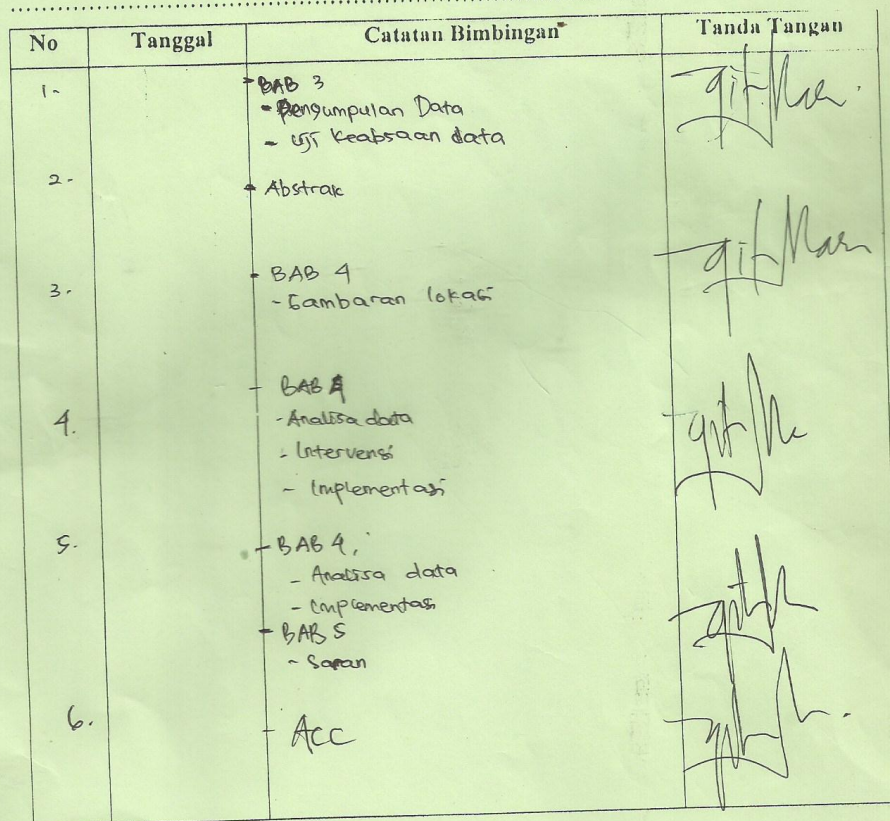 No Tanggal Catatan Bimbingan Tanda Tangan
1- - BAB 3
- Pengumpulan Data
- Uji Keabsaan data
2- - Abstrak
- BAB 4
3- - Gambaran lokasi
- BAB 4
4. - Analisa data
- Intervensi
- Implementasi
5. - BAB 4,
- Analisa data
- Implementasi
- BAB 5
- Saran
6. - ACC